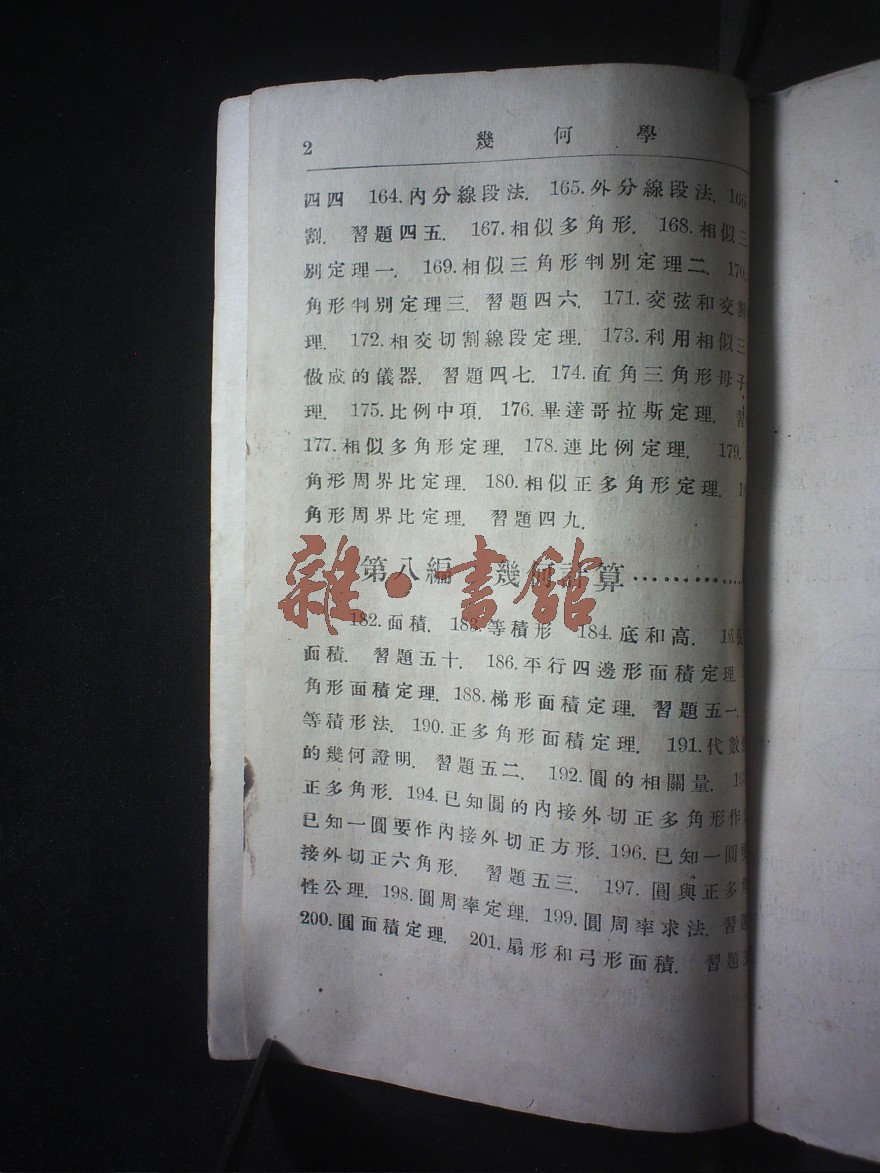 2 幾何學
四四 164.內分線段法. 165.外分線段法. 166
割. 習題四五. 167.相似多角形. 168.相似三
別定理一. 169.相似三角形判別定理二. 170.
角形判別定理三. 習題四六. 171. 交弦和交割
理. 172.相交切割線段定理. 173.利用相似三
做成的儀器. 習題四七. 174.直角三角形母子
理. 175.比例中項. 176.畢達哥拉斯定理. 習
177.相似多角形定理. 178.連比例定理. 179.
角形周界比定理. 180.相似正多角形定理.
角形周界比定理. 習題四九.
第八編 幾何計算
182.面積. 183.等積形 184.底和高.
面積. 習題五十. 186.平行四邊形面積定理
角形面積定理. 188.梯形面積定理. 習題五一.
等積形法. 190.正多角形面積定理. 191.代數
的幾何證明. 習題五二. 192.圓的相關量.
正多角形. 194.已知圓的內接外切正多角形作
已知一圓要作內接外切正方形. 196.已知一圓
接外切正六角形. 習題五三. 197.圓與正多角
性公理. 198.圓周率定理. 199.圓周率求法. 習題
200.圓面積定理. 201.扇形和弓形面積. 習題五
雜·書館